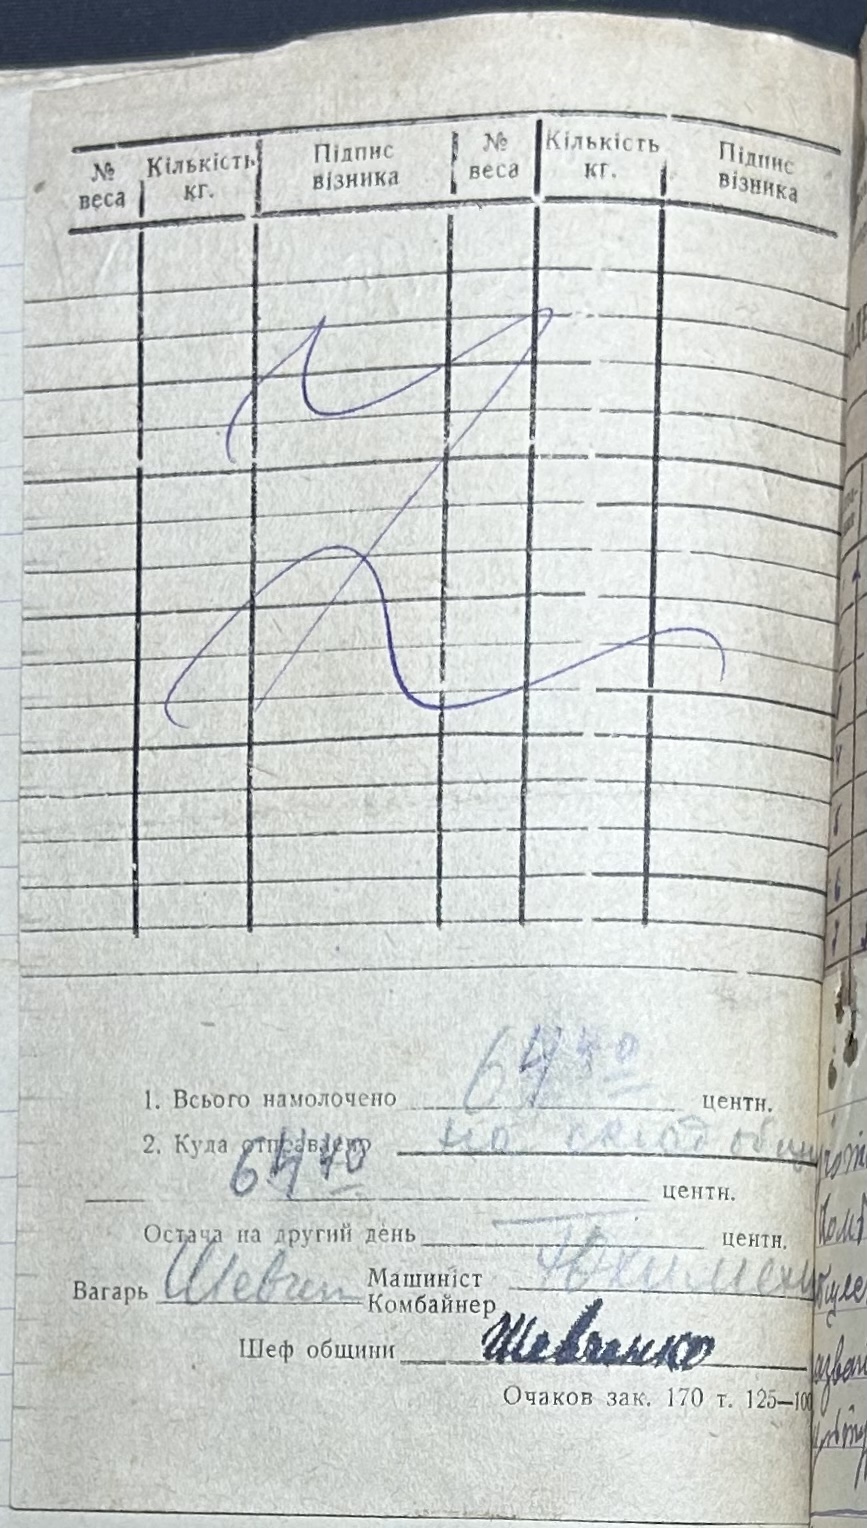 № веса Кількість кг. Підпис візника № веса Кількість кг. Підпис візника
1. Всього намолочено 64 40 центн.
2. Куда отправлено на склад общи
64 40 центн.
Остача на другий день — центн.
Вагарь Шевчен Машиніст Комбайнер Юхимен
Шеф общини Шевченко
Очаков зак. 170 т. 125—100